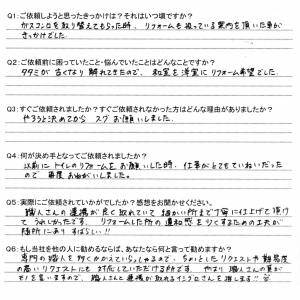 Q1:ご依頼しようと思ったきっかけは？それはいつ頃ですか？
ガスコンロを取り替えてもらった時、リフォームも扱っている案内を頂いた事が
きっかけでした。
Q2:ご依頼前に困っていたこと・悩んでいたことはどんなことですか？
タタミが古くなり 解れてきたので、和室を洋室にリフォーム希望でした。
Q3:すぐご依頼されましたか？すぐご依頼されなかった方はどんな理由がありましたか？
やろうと決めてから スグ お願いしました。
Q4:何が決め手となってご依頼されましたか？
以前に トイレのリフォームを お願いした時、仕事が とてもていねいだった
ので 再度 お願いしました。
Q5:実際にご依頼されていかがでしたか？感想をお聞かせください。
職人さんの連携が良く取れていて 細かい所まで丁寧に仕上げて頂け
て うれしかったです。 リフォームした所の違和感をなくするための工夫が
随所にあり すばらしい!!
Q6:もし当社を他の人に勧めるならば、あなたなら何と言って勧めますか？
専門の職人を 多くかかえていらっしゃるので、ちょっとした リクエストや難易度
の高いリクエストにも 対応していただける所です。 やはり 職人さんの質が
モノを言いますので、職人さんと連携が取れる